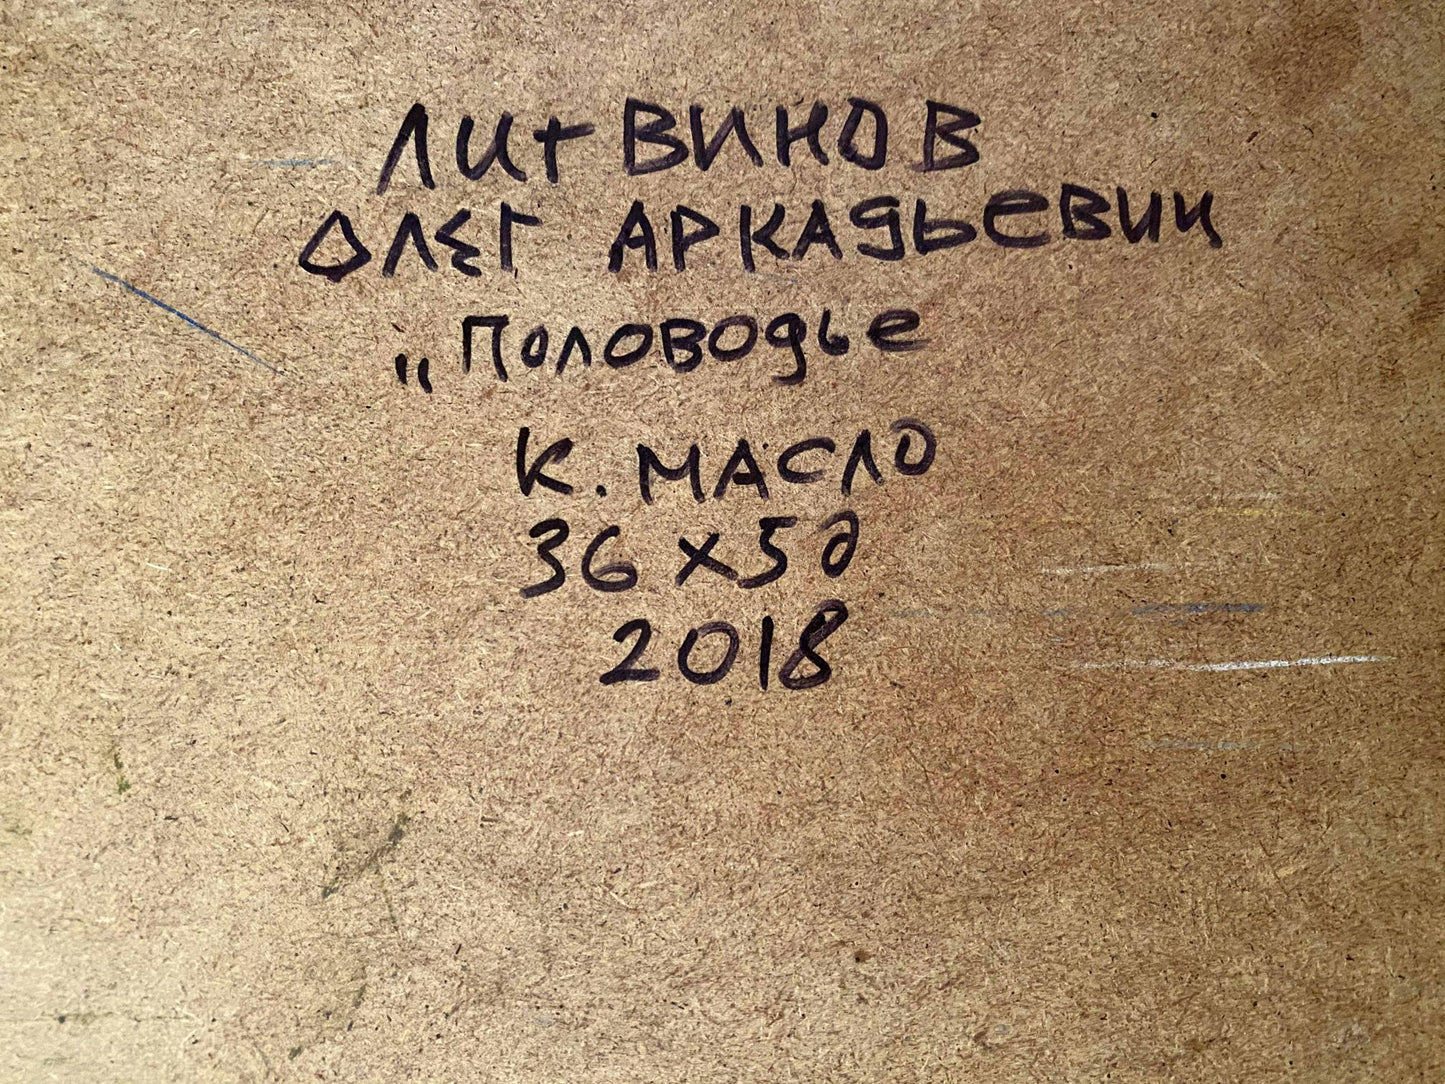 ЛИТВИНОВ
ОЛЕГ АРКАДЬЕВИЧ
„Половодье
К. МАСЛО
36 х 50
2018